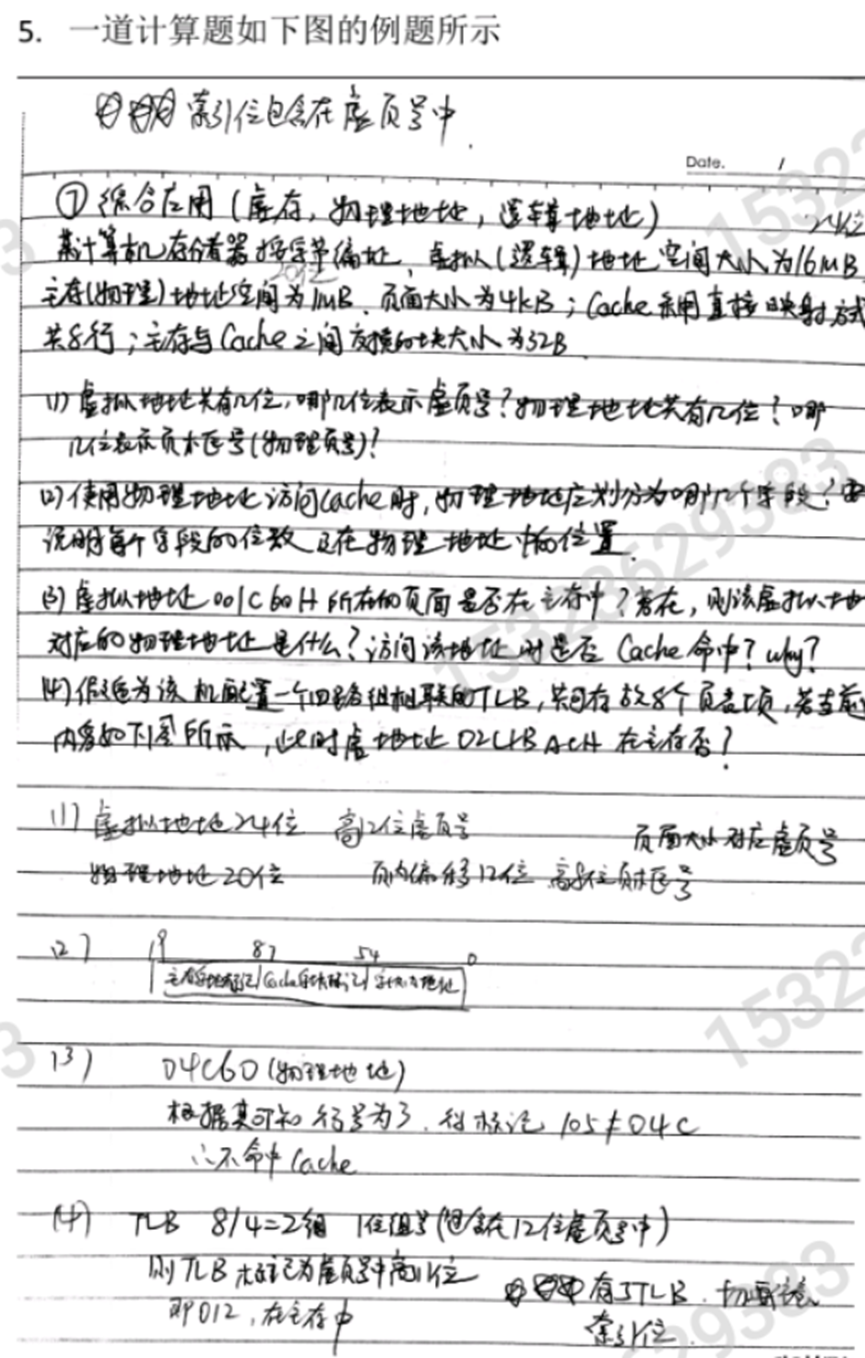 5. 一道计算题如下图的例题所示
索引位包含在虚页号中.
Date. /
⑦ 综合应用(虚存,物理地址,逻辑地址)
24位
某计算机存储器按字节编址,虚拟(逻辑)地址空间大小为16MB
20位
主存(物理)地址空间为1MB.页面大小为4KB;Cache采用直接映射方式
共8行;主存与Cache之间交换的块大小为32B
(1) 虚拟地址共有几位,哪几位表示虚页号?物理地址共有几位?哪
几位表示页框号(物理页号)?
(2) 使用物理地址访问Cache时,物理地址应划分为哪几个字段?要
说明每个字段的位数及在物理地址中的位置.
(3) 虚拟地址001C60H所在的页面是否在主存中?若在,则该虚拟地
对应的物理地址是什么?访问该地址时是否Cache命中?why?
(4) 假定为该机配置一个四路组相联的TLB,共可存放8个页表项,若当前
内容如下图所示,此时虚地址024BACH在主存否?
(1) 虚拟地址24位 高12位虚页号 页面大小对应虚页号
物理地址20位 页内偏移12位 高8位页框号
(2) 19 87 54 0
主存字块标记 Cache字块标记 字块内地址
(3) 04C60(物理地址)
根据其可知行号为3.行标记 105≠04C
∴不命中Cache
(4) TLB 8/4=2组 1位组号(包含在12位虚页号中)
则TLB标记为虚页号中高11位
即012,在主存中
有了TLB.
索引位.
15323629383